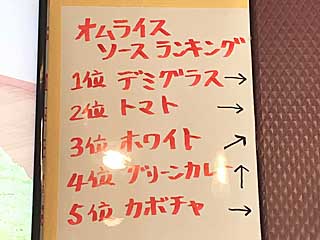 オムライス
ソース ランキング
1位 デミグラス→
2位 トマト →
3位 ホワイト ↗
4位 グリーンカレー ↑
5位 カボチャ →